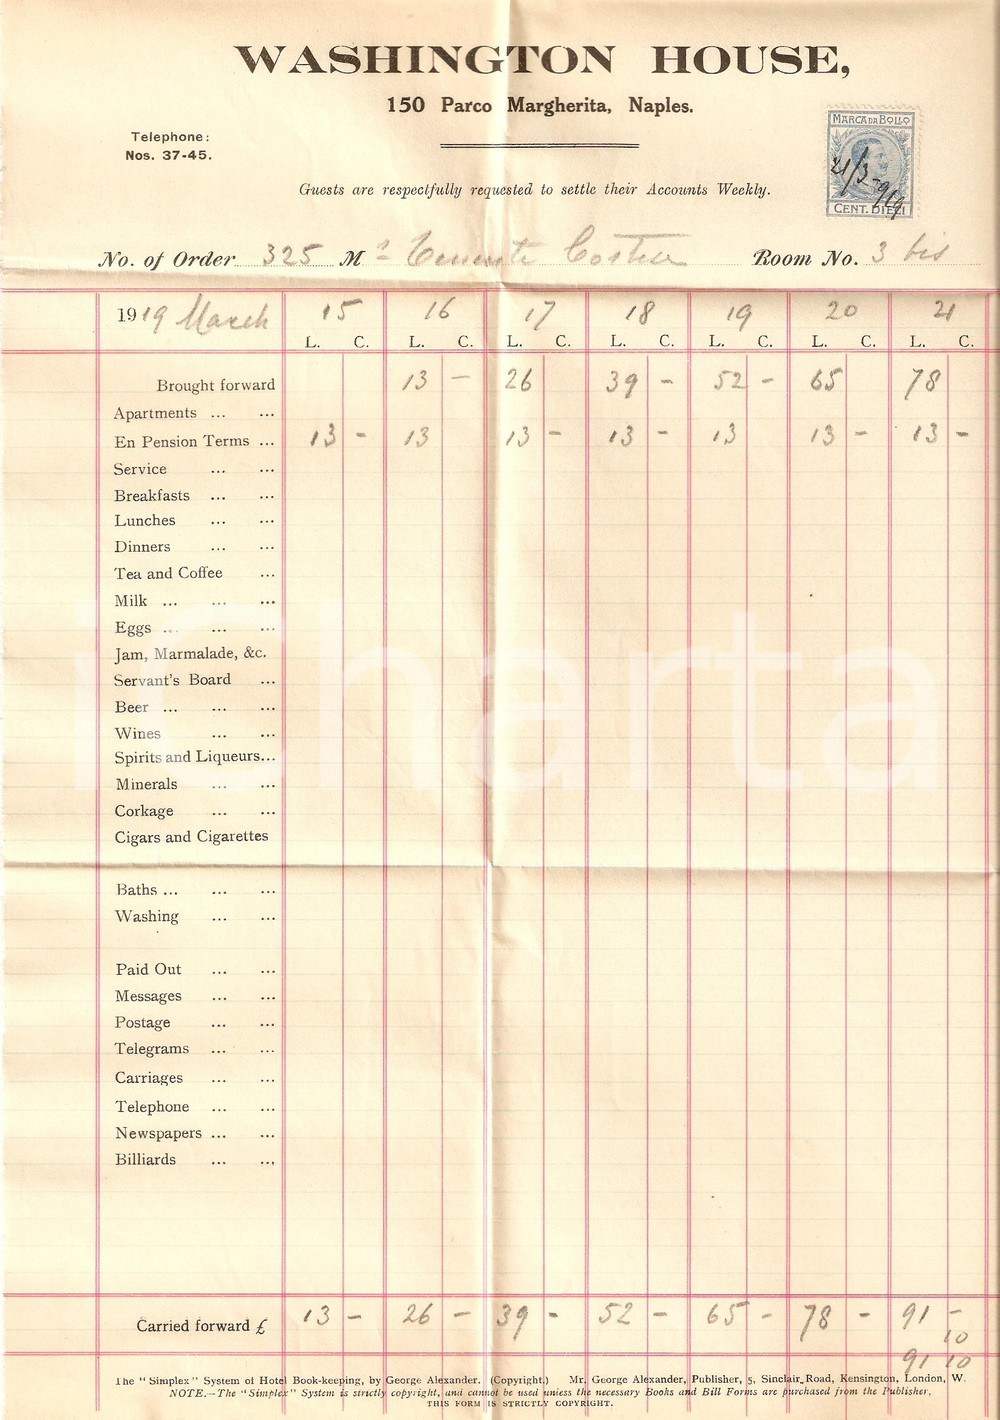 WASHINGTON HOUSE,
150 Parco Margherita, Naples.
Telephone:
Nos. 37-45.
MARCA DA BOLLO
21/3-919
CENT. DIECI
Guests are respectfully requested to settle their Accounts Weekly.
No. of Order 325 Mr Tenente Room No. 3 bis
1919 March 15 16 17 18 19 20 21
L. C. L. C. L. C. L. C. L. C. L. C. L. C.
Brought forward 13 - 26 39 - 52 - 65 78
Apartments ... ...
En Pension Terms ... 13 - 13 13 - 13 - 13 13 - 13 -
Service ... ...
Breakfasts ... ...
Lunches ... ...
Dinners ... ...
Tea and Coffee ...
Milk ... ... ...
Eggs ... ... ...
Jam, Marmalade, &c.
Servant's Board ...
Beer ... ... ...
Wines ... ...
Spirits and Liqueurs...
Minerals ... ...
Corkage ... ...
Cigars and Cigarettes
Baths ... ... ...
Washing ... ...
Paid Out ... ...
Messages ... ...
Postage ... ...
Telegrams ... ...
Carriages ... ...
Telephone ... ...
Newspapers ... ...
Billiards ... ...
Carried forward £ 13 - 26 - 39 - 52 - 65 - 78 - 91 -
10
91 10
The "Simplex" System of Hotel Book-keeping, by George Alexander. (Copyright.) Mr. George Alexander, Publisher, 5, Sinclair Road, Kensington, London, W.
NOTE.—The "Simplex" System is strictly copyright, and cannot be used unless the necessary Books and Bill Forms are purchased from the Publisher.
THIS FORM IS STRICTLY COPYRIGHT.
iCharta